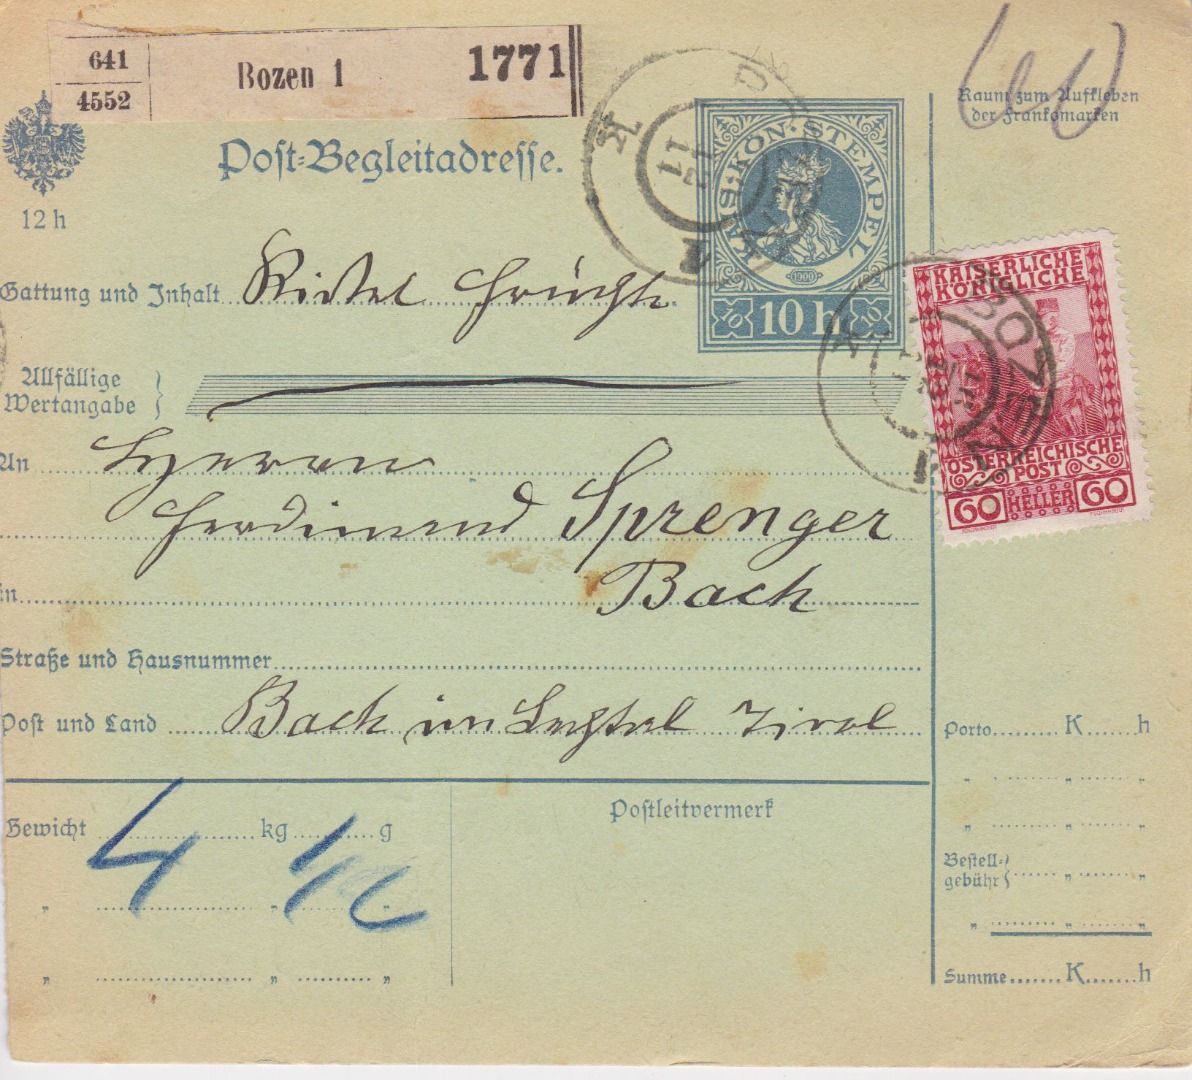 641
4552
Bozen 1
1771
Post-Begleitadresse.
12 h
KAIS. KÖN. STEMPEL
1900
10 10 h 10
60
Raum zum Aufkleben
der Frankomarken
Gattung und Inhalt Kistel Früchte
KAISERLICHE
KÖNIGLICHE
ÖSTERREICHISCHE
POST
60 HELLER 60
BOZEN
11
Allfällige
Wertangabe
An Herrn
Ferdinand Sprenger
in Bach
Straße und Hausnummer
Post und Land Bach im Lechtal Tirol
Gewicht 4 kg g
Postleitvermerk
Porto K h
Bestell-
gebühr
Summe K h